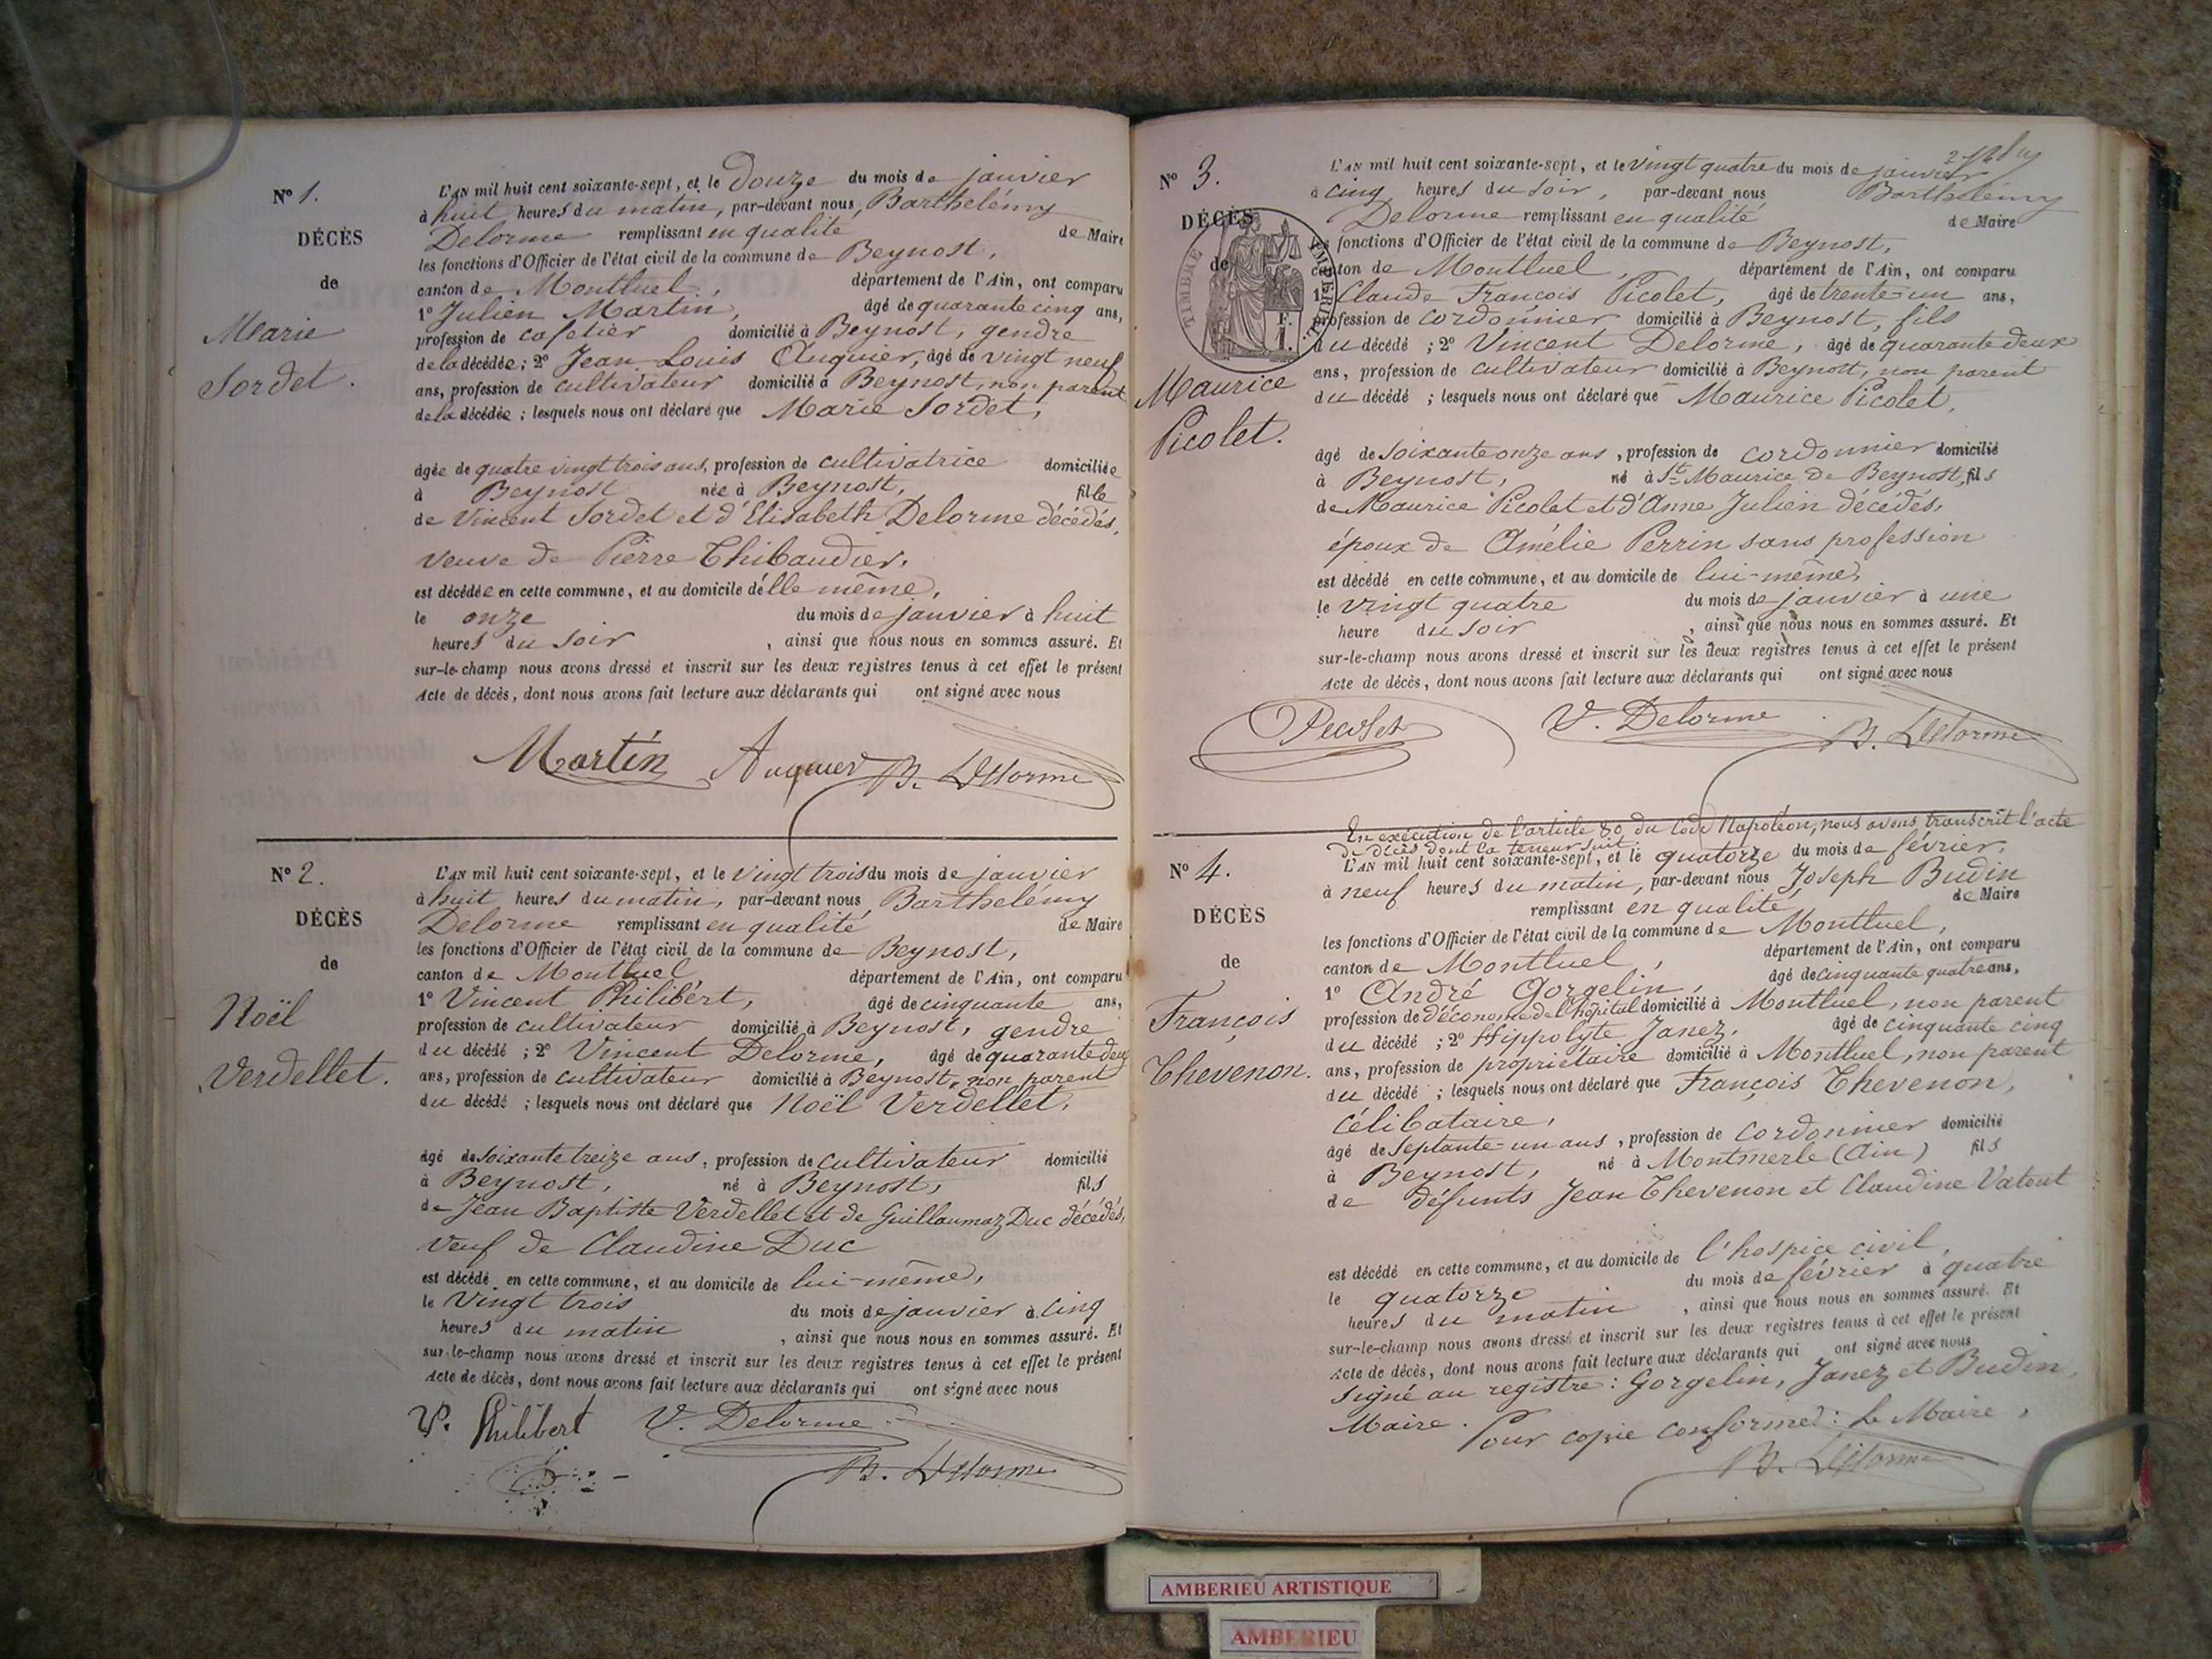 N° 1.
DÉCÈS
de
Marie
Sordet.
L'AN mil huit cent soixante-sept, et le Douze du mois de janvier
à huit heures du matin, par-devant nous, Barthelémy
Delorme remplissant en qualité de Maire
les fonctions d'Officier de l'état civil de la commune de Beynost,
canton de Montluel, département de l'Ain, ont comparu
1° Julien Martin, âgé de quarante cinq ans,
profession de cafetier domicilié à Beynost, gendre
de la décédée; 2° Jean Louis Auquier, âgé de vingt neuf
ans, profession de cultivateur domicilié à Beynost, non parent
de la décédée; lesquels nous ont déclaré que Marie Sordet,
âgée de quatre vingt trois ans, profession de cultivatrice domiciliée
à Beynost née à Beynost, fille
de Vincent Sordet et d'Elisabeth Delorme décédés,
veuve de Pierre Thibaudier,
est décédée en cette commune, et au domicile d'élle même,
le onze du mois de janvier à huit
heures du soir, ainsi que nous nous en sommes assuré. Et
sur-le-champ nous avons dressé et inscrit sur les deux registres tenus à cet effet le présent
Acte de décès, dont nous avons fait lecture aux déclarants qui ont signé avec nous
Martin Auquier B. Delorme
N° 2.
DÉCÈS
de
Noël
Verdellet.
L'AN mil huit cent soixante-sept, et le vingt trois du mois de janvier
à huit heures du matin, par-devant nous Barthelémy
Delorme remplissant en qualité de Maire
les fonctions d'Officier de l'état civil de la commune de Beynost,
canton de Montluel département de l'Ain, ont comparu
1° Vincent Philibért, âgé de cinquante ans,
profession de cultivateur domicilié à Beynost, gendre
du décédé; 2° Vincent Delorme, âgé de quarante deux
ans, profession de cultivateur domicilié à Beynost, non parent
du décédé; lesquels nous ont déclaré que Noël Verdellet,
âgé de soixante treize ans, profession de cultivateur domicilié
à Beynost, né à Beynost, fils
de Jean Baptiste Verdellet et de Guillaumaz Duc décédés,
veuf de Claudine Duc
est décédé en cette commune, et au domicile de lui-même,
le vingt trois du mois de janvier à cinq
heures du matin, ainsi que nous nous en sommes assuré. Et
sur-le-champ nous avons dressé et inscrit sur les deux registres tenus à cet effet le présent
Acte de décès, dont nous avons fait lecture aux déclarants qui ont signé avec nous
V. Philibert V. Delorme
B. Delorme
N° 3.
DÉCÈS
de
TIMBRE IMPERIAL
F.
1.
Maurice
Picolet.
L'AN mil huit cent soixante-sept, et le vingt quatre du mois de janvier
à cinq heures du soir, par-devant nous Barthelémy
Delorme remplissant en qualité de Maire
les fonctions d'Officier de l'état civil de la commune de Beynost,
canton de Montluel, département de l'Ain, ont comparu
1° Claude François Picolet, âgé de trente-un ans,
profession de cordonnier domicilié à Beynost, fils
du décédé; 2° Vincent Delorme, âgé de quarante deux
ans, profession de cultivateur domicilié à Beynost, non parent
du décédé; lesquels nous ont déclaré que Maurice Picolet,
âgé de soixante onze ans, profession de cordonnier domicilié
à Beynost, né à St Maurice de Beynost, fils
de Maurice Picolet et d'Anne Julien décédés,
époux de Amélie Perrin sans profession
est décédé en cette commune, et au domicile de lui-même,
le vingt quatre du mois de janvier à une
heure du soir, ainsi que nous nous en sommes assuré. Et
sur-le-champ nous avons dressé et inscrit sur les deux registres tenus à cet effet le présent
Acte de décès, dont nous avons fait lecture aux déclarants qui ont signé avec nous
Picolet V. Delorme B. Delorme
En exécution de l'article 80 du Code Napoléon, nous avons transcrit l'acte
de décès dont la teneur suit:
N° 4.
DÉCÈS
de
François
Thevenon.
L'AN mil huit cent soixante-sept, et le quatorze du mois de février,
à neuf heures du matin, par-devant nous Joseph Budin
remplissant en qualité de Maire
les fonctions d'Officier de l'état civil de la commune de Montluel,
canton de Montluel, département de l'Ain, ont comparu
1° André Gorgelin, âgé de cinquante quatre ans,
profession de d'économe de l'hôpital domicilié à Montluel, non parent
du décédé; 2° Hippolyte Janez, âgé de cinquante cinq
ans, profession de propriétaire domicilié à Montluel, non parent
du décédé; lesquels nous ont déclaré que François Thevenon,
célibataire,
âgé de septante-un ans, profession de cordonnier domicilié
à Beynost, né à Montmerle (Ain) fils
de défunts Jean Thevenon et Claudine Vatout
est décédé en cette commune, et au domicile de l'hospice civil,
le quatorze du mois de février à quatre
heures du matin, ainsi que nous nous en sommes assuré. Et
sur-le-champ nous avons dressé et inscrit sur les deux registres tenus à cet effet le présent
Acte de décès, dont nous avons fait lecture aux déclarants qui ont signé avec nous
signé au registre: Gorgelin, Janez et Budin,
Maire. Pour copie conforme: Le Maire,
B. Delorme
AMBERIEU ARTISTIQUE
AMBERIEU